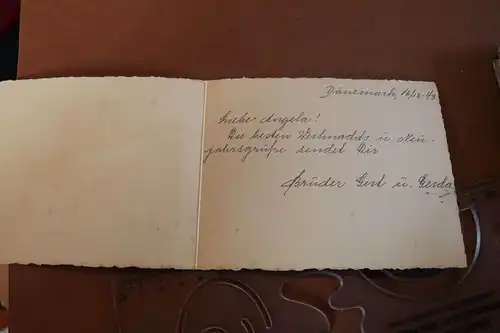 Dänemark, 16/12.43
Liebe Angela!
Die besten Weihnachts u. Neu-
jahrsgrüße sendet Dir
Brüder Gert u. Gerda